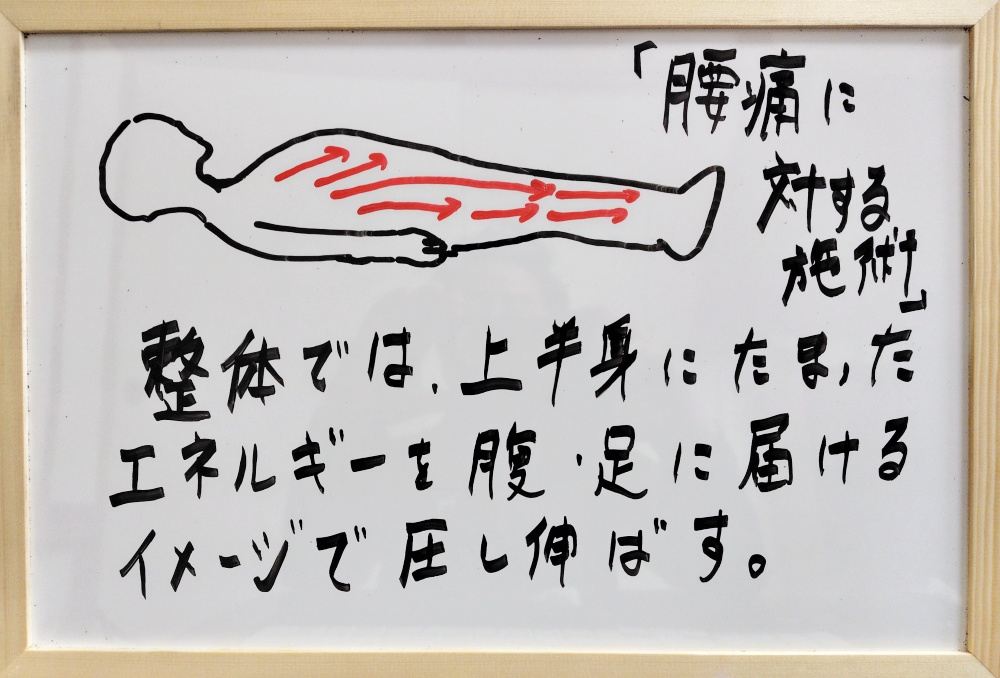 「腰痛に
対する
施術」
整体では、上半身にたまった
エネルギーを腹・足に届ける
イメージで圧し伸ばす。